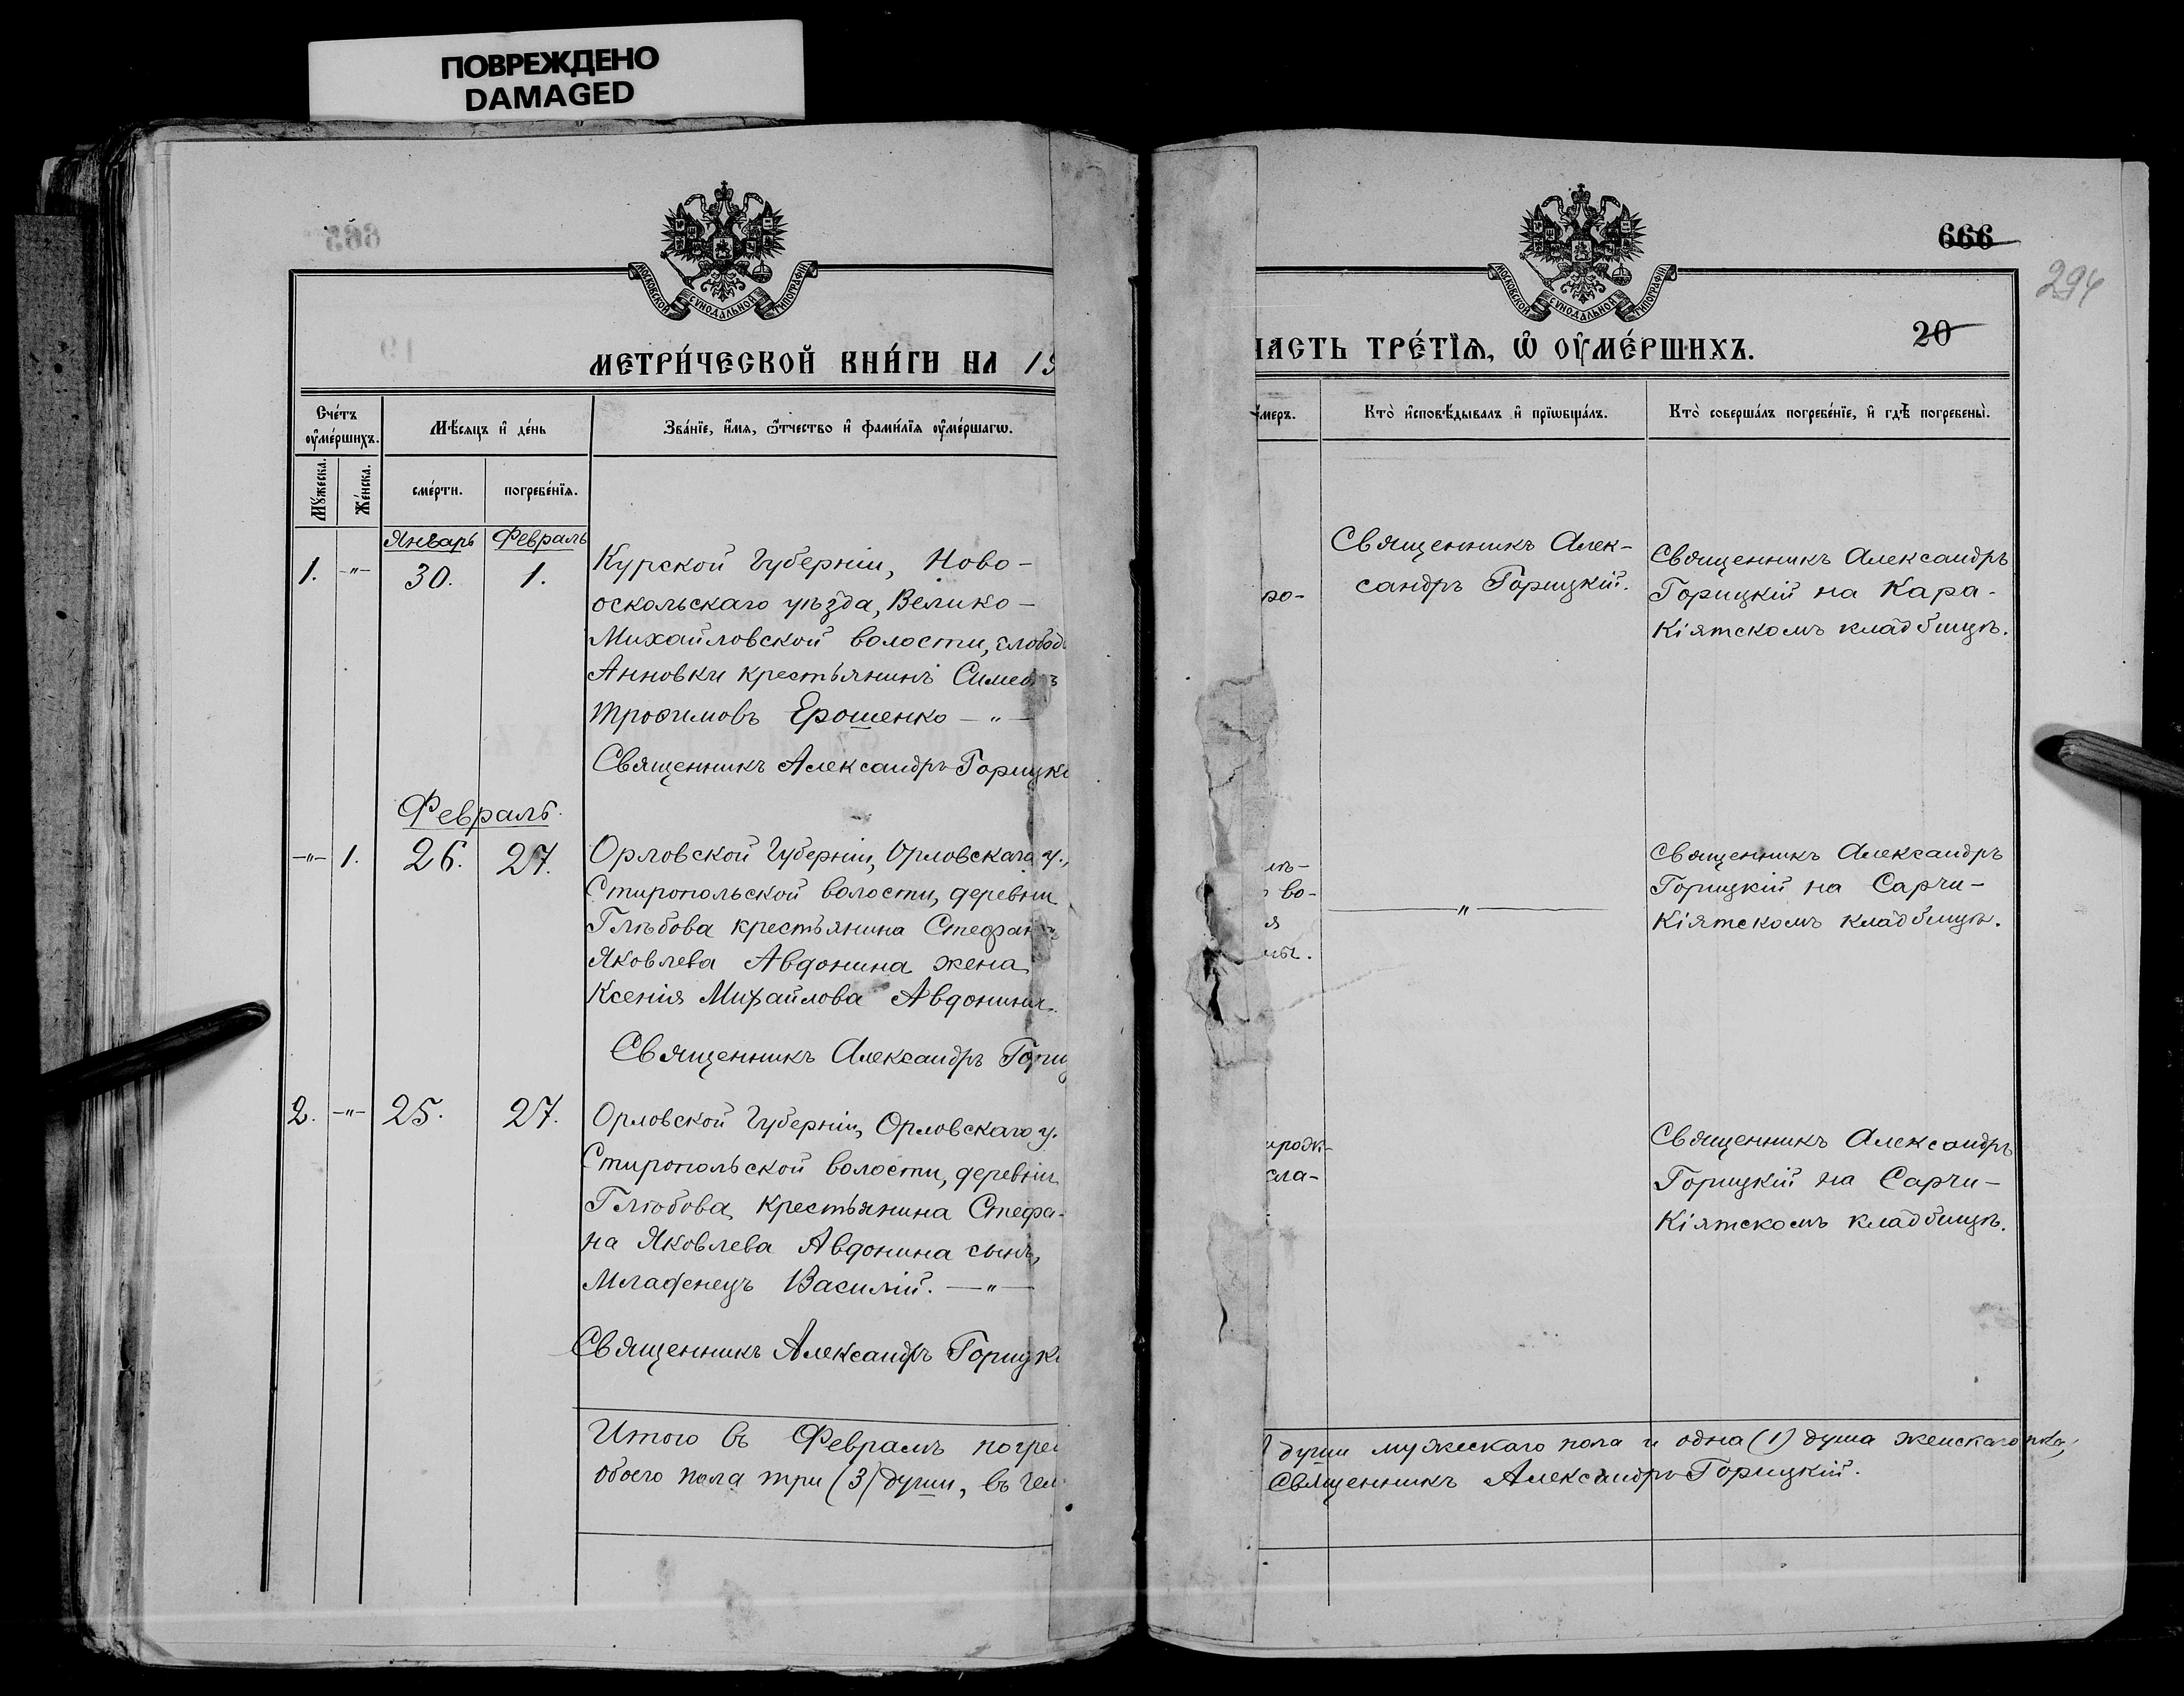 ПОВРЕЖДЕНО
DAMAGED
665
МОСКОВСКОЙ СѴНОДАЛЬНОЙ ТИПОГРАФІИ
19
МЕТРИ́ЧЕСКОЙ КНИ́ГИ НА 19
Сче́тъ ᲂу҆ме́ршихъ.
Мѣ́сяцъ и҆ де́нь
Зва́нїе, и҆́мя, ѻ҆́тчество и҆ фами́лїя ᲂу҆ме́ршагѡ.
Мꙋ́жеска.
Же́нска.
сме́рти.
погребе́нїя.
Январь
Февраль
1.
-"-
30.
1.
Курской Губерніи, Ново-
оскольскаго уѣзда, Велико-
Михайловской волости, слобод
Анновки крестьянинъ Симеонъ
Трофимовъ Ерошенко - " -
Священникъ Александръ Горицкі
Февраль.
-"-
1.
26.
27.
Орловской Губерніи, Орловскаго у.,
Стиропольской волости, деревни
Глѣбова крестьянина Стефана
Яковлева Авдонина жена
Ксенія Михайлова Авдонина.
Священникъ Александръ Гориц
2.
-"-
25.
27.
Орловской Губерніи, Орловскаго у.
Стиропольской волости, деревни
Глѣбова крестьянина Стефа-
на Яковлева Авдонина сынъ,
Младенецъ Василій. - " -
Священникъ Александръ Горицкі
Итого въ Февралѣ погре
обоего пола три (3) души, въ чем
МОСКОВСКОЙ СѴНОДАЛЬНОЙ ТИПОГРАФІИ
666
294
20
ЧАСТЬ ТРЕ́ТЇѦ, Ѡ҆ ОУ҆МЕ́РШИХЪ.
у҆меръ.
Кто̀ и҆сповѣ́дывалъ и҆ прїѡбща́лъ.
Кто̀ соверша́лъ погребе́нїе, и҆ гдѣ̀ погребены̀.
ро-
Священникъ Алек-
сандръ Горицкій.
Священникъ Александръ
Горицкій на Кара-
Кіятскомъ кладбищѣ.
во-
я
- " -
Священникъ Александръ
Горицкій на Сарчи-
Кіятскомъ кладбищѣ.
сла-
Священникъ Александръ
Горицкій на Сарчи-
Кіятскомъ кладбищѣ.
души мужескаго пола и одна (1) душа женскаго пола,
Священникъ Александръ Горицкій.